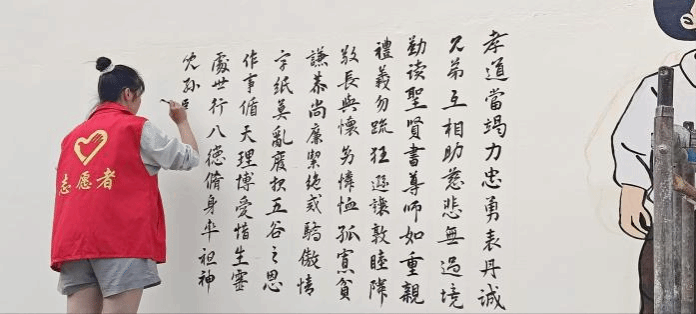 孝道當竭力忠勇表丹誠
兄弟互相助慈悲無過境
勤读聖賢書尊師如重親
禮義勿疏狂遜讓敦睦隣
敬長與懷幼憐恤孤寡貧
謙恭尚廉潔絕戒驕傲情
字紙莫亂廢报五谷之恩
作事循天理博愛惜生靈
處世行八德脩身率祖神
孫
志愿者